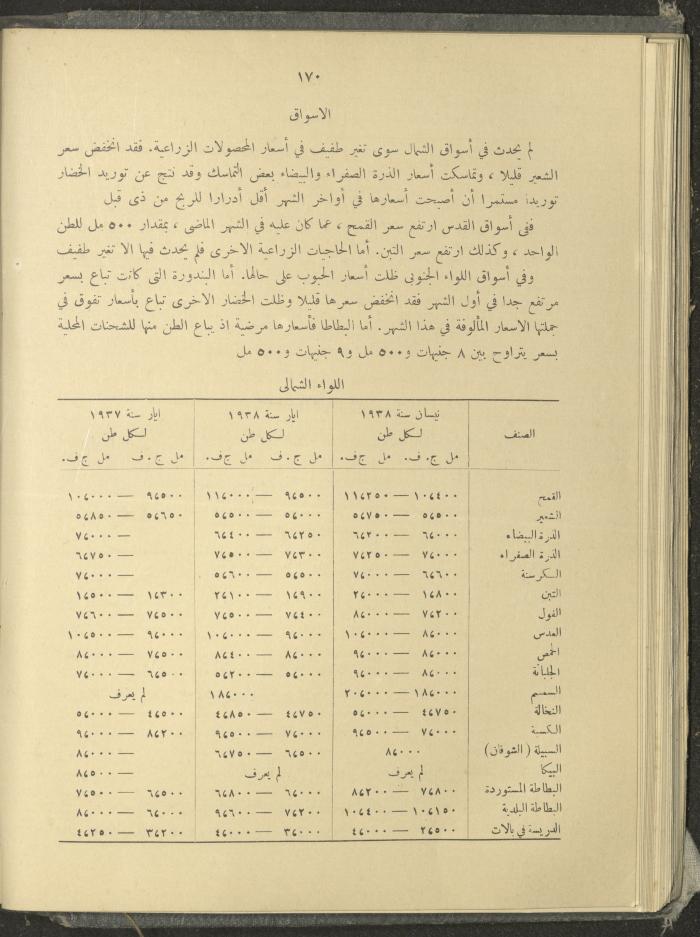 ١٧٠
الاسواق
لم يحدث في أسواق الشمال سوى تغير طفيف في أسعار المحصولات الزراعية. فقد انخفض سعر
الشعير قليلا ، وتماسكت أسعار الذرة الصفراء والبيضاء بعض التماسك وقد نتج عن توريد الخضار
توريدا مستمرا أن أصبحت أسعارها في أواخر الشهر أقل أدرارا للربح من ذى قبل
ففى أسواق القدس ارتفع سعر القمح ، عما كان عليه في الشهر الماضى ، بمقدار ٥٠٠ مل للطن
الواحد ، وكذلك ارتفع سعر التبن. أما الحاجيات الزراعية الاخرى فلم يحدث فيها الا تغير طفيف
وفي أسواق اللواء الجنوبى ظلت أسعار الحبوب على حالها. أما البندورة التى كانت تباع بسعر
مرتفع جدا في أول الشهر فقد انخفض سعرها قليلا وظلت الخضار الاخرى تباع بأسعار تفوق في
جملتها الاسعار المألوفة في هذا الشهر. أما البطاطا فأسعارها مرضية اذ يباع الطن منها للشحنات المحلية
بسعر يتراوح بين ٨ جنيهات و٥٠٠ مل و٩ جنيهات و٥٠٠ مل
اللواء الشمالى
الصنف نيسان سنة ١٩٣٨ ايار سنة ١٩٣٨ ايار سنة ١٩٣٧
لكل طن لكل طن لكل طن
مل ج.ف. مل ج.ف. مل ج.ف مل ج.ف. مل ج.ف مل ج.ف.
القمح ١٠،٤٠٠ — ١١،٢٥٠ ٩،٥٠٠ — ١١،٠٠٠ ٩،٥٠٠ — ١٠،٠٠٠
الشعير ٥،٥٠٠ — ٥،٧٥٠ ٥،٠٠٠ — ٥،٥٠٠ ٥،٦٥٠ — ٥،٨٥٠
الذرة البيضاء ٦،٠٠٠ — ٦،٢٠٠ ٦،٢٥٠ — ٦،٤٠٠ — ٧،٠٠٠
الذرة الصفراء ٧،٠٠٠ — ٧،٢٥٠ ٧،٣٠٠ — ٧،٥٠٠ — ٦،٧٥٠
الكرسنة ٦،٦٠٠ — ٧،٠٠٠ ٥،٥٠٠ — ٥،٦٠٠ — ٧،٠٠٠
التبن ١،٨٠٠ — ٢،٠٠٠ ١،٩٠٠ — ٢،١٠٠ ١،٣٠٠ — ١،٥٠٠
الفول ٧،٢٠٠ — ٨،٠٠٠ ٧،٤٠٠ — ٧،٥٠٠ ٧،٥٠٠ — ٧،٦٠٠
العدس ٨،٠٠٠ — ١٠،٠٠٠ ٩،٠٠٠ — ١٠،٠٠٠ ٩،٠٠٠ — ١٠،٥٠٠
الحمص ٨،٠٠٠ — ٩،٠٠٠ ٨،٠٠٠ — ٨،٤٠٠ ٧،٥٠٠ — ٨،٠٠٠
الجلبانة ٨،٠٠٠ — ٩،٠٠٠ ٥،٠٠٠ — ٥،٢٠٠ ٦،٥٠٠ — ٧،٠٠٠
السمسم ١٨،٠٠٠ — ٢٠،٠٠٠ ١٨،٠٠٠ لم يعرف
النخالة ٤،٧٥٠ — ٥،٠٠٠ ٤،٧٥٠ — ٤،٨٥٠ ٤،٥٠٠ — ٥،٠٠٠
الكسبة ٧،٠٠٠ — ٩،٥٠٠ ٧،٠٠٠ — ٩،٥٠٠ ٨،٢٠٠ — ٩،٠٠٠
السبيلة ( الشوفان) ٨،٠٠٠ ٦،٥٠٠ — ٦،٧٥٠ — ٨،٠٠٠
البيكا لم يعرف لم يعرف — ٨،٥٠٠
البطاطة المستوردة ٧،٨٠٠ — ٨،٢٠٠ ٦،٠٠٠ — ٦،٨٠٠ ٦،٥٠٠ — ٧،٥٠٠
البطاطة البلدية ١٠،١٥٠ — ١٠،٤٠٠ ٧،٢٠٠ — ٩،٦٠٠ ٦،٠٠٠ — ٨،٠٠٠
الدريسة في بالات ٢،٥٠٠ — ٤،٠٠٠ ٣،٠٠٠ — ٤،٠٠٠ ٣،٢٠٠ — ٤،٢٥٠